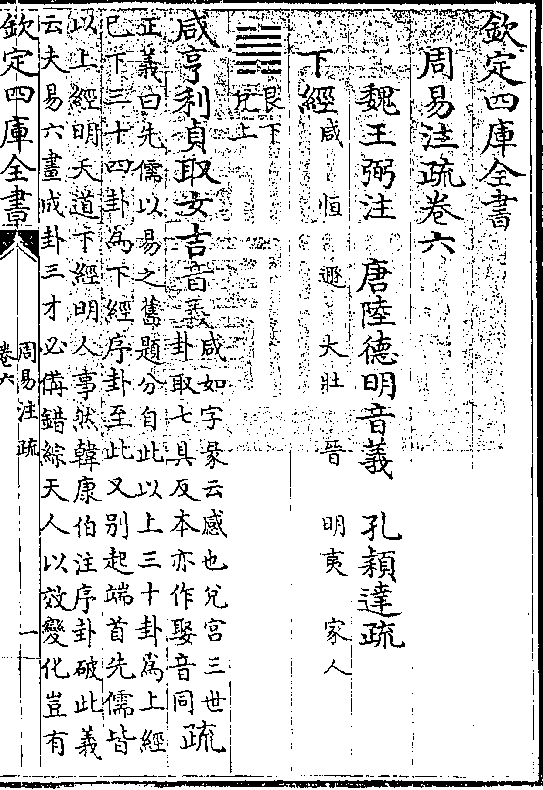 欽定四庫全書
周易注疏卷六
魏王弼注 唐陸德明音義 孔穎達疏
下經 咸 恒 遯 大壯 晉 明夷 家人
艮下
兌上
咸亨利貞取女吉音義咸如字彖云感也兌宮三世
卦取七具反本亦作娶音同疏
正義曰先儒以易之舊題分自此以上三十卦爲上經
已下三十四卦爲下經序卦至此又別起端首先儒皆
以上經明天道下經明人事然韓康伯注序卦破此義
云夫易六畫成卦三才必備錯綜天人以效變化豈有
欽定四庫全書
周易注疏
卷六
一